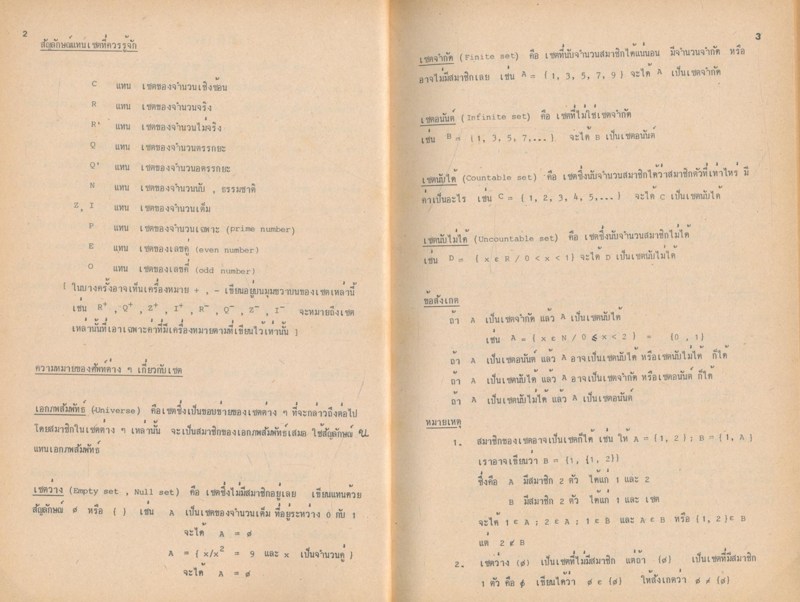 2
สัญลักษณ์แทนเซตที่ควรรู้จัก
C แทน เซตของจำนวนเชิงซ้อน
R แทน เซตของจำนวนจริง
R' แทน เซตของจำนวนไม่จริง
Q แทน เซตของจำนวนตรรกยะ
Q' แทน เซตของจำนวนอตรรกยะ
N แทน เซตของจำนวนนับ , ธรรมชาติ
Z, I แทน เซตของจำนวนเต็ม
P แทน เซตของจำนวนเฉพาะ (prime number)
E แทน เซตของเลขคู่ (even number)
O แทน เซตของเลขคี่ (odd number)
[ ในบางครั้งอาจเห็นเครื่องหมาย + , - เขียนอยู่บนมุมขวาบนของเซตเหล่านี้
เช่น R⁺ , Q⁺ , Z⁺ , I⁺ , R⁻ , Q⁻ , Z⁻ , I⁻ จะหมายถึงเซต
เหล่านั้นที่เอาเฉพาะตัวที่มีเครื่องหมายตามที่เขียนไว้เท่านั้น ]
ความหมายของศัพท์ต่าง ๆ เกี่ยวกับเซต
เอกภพสัมพัทธ์ (Universe) คือเซตซึ่งเป็นขอบข่ายของเซตต่าง ๆ ที่จะกล่าวถึงต่อไป
โดยสมาชิกในเซตต่าง ๆ เหล่านั้น จะเป็นสมาชิกของเอกภพสัมพัทธ์เสมอ ใช้สัญลักษณ์ U
แทนเอกภพสัมพัทธ์
เซตว่าง (Empty set , Null set) คือ เซตซึ่งไม่มีสมาชิกอยู่เลย เขียนแทนด้วย
สัญลักษณ์ ø หรือ { } เช่น A เป็นเซตของจำนวนเต็ม ที่อยู่ระหว่าง 0 กับ 1
จะได้ A = ø
A = { x/x² = 9 และ x เป็นจำนวนคู่ }
จะได้ A = ø
3
เซตจำกัด (Finite set) คือ เซตที่นับจำนวนสมาชิกได้แน่นอน มีจำนวนจำกัด หรือ
อาจไม่มีสมาชิกเลย เช่น A = { 1, 3, 5, 7, 9 } จะได้ A เป็นเซตจำกัด
เซตอนันต์ ( Infinite set) คือ เซตที่ไม่ใช่เซตจำกัด
เช่น B = { 1, 3, 5, 7,... } จะได้ B เป็นเซตอนันต์
เซตนับได้ (Countable set) คือ เซตซึ่งนับจำนวนสมาชิกได้ว่าสมาชิกตัวที่เท่าไหร่ มี
ค่าเป็นอะไร เช่น C = { 1, 2, 3, 4, 5,... } จะได้ C เป็นเซตนับได้
เซตนับไม่ได้ (Uncountable set) คือ เซตซึ่งนับจำนวนสมาชิกไม่ได้
เช่น D = { x ∈ R / 0 < x < 1} จะได้ D เป็นเซตนับไม่ได้
ข้อสังเกต
ถ้า A เป็นเซตจำกัด แล้ว A เป็นเซตนับได้
เช่น A = { x ∈ N / 0 ≤ x < 2 } = {0 , 1}
ถ้า A เป็นเซตอนันต์ แล้ว A อาจเป็นเซตนับได้ หรือเซตนับไม่ได้ ก็ได้
ถ้า A เป็นเซตนับได้ แล้ว A อาจเป็นเซตจำกัด หรือเซตอนันต์ ก็ได้
ถ้า A เป็นเซตนับไม่ได้ แล้ว A เป็นเซตอนันต์
หมายเหตุ
1. สมาชิกของเซตอาจเป็นเซตก็ได้ เช่น ให้ A = {1, 2} ; B = {1, A}
เราอาจเขียนว่า B = {1, {1, 2}}
ซึ่งคือ A มีสมาชิก 2 ตัว ได้แก่ 1 และ 2
B มีสมาชิก 2 ตัว ได้แก่ 1 และ เซต
จะได้ 1 ∈ A ; 2 ∈ A ; 1 ∈ B และ A ∈ B หรือ {1, 2} ∈ B
แต่ 2 ∉ B
2. เซตว่าง (ø) เป็นเซตที่ไม่มีสมาชิก แต่ถ้า {ø} เป็นเซตที่มีสมาชิก
1 ตัว คือ ø เขียนได้ว่า ø ∈ {ø} ให้สังเกตว่า ø ≠ {ø}